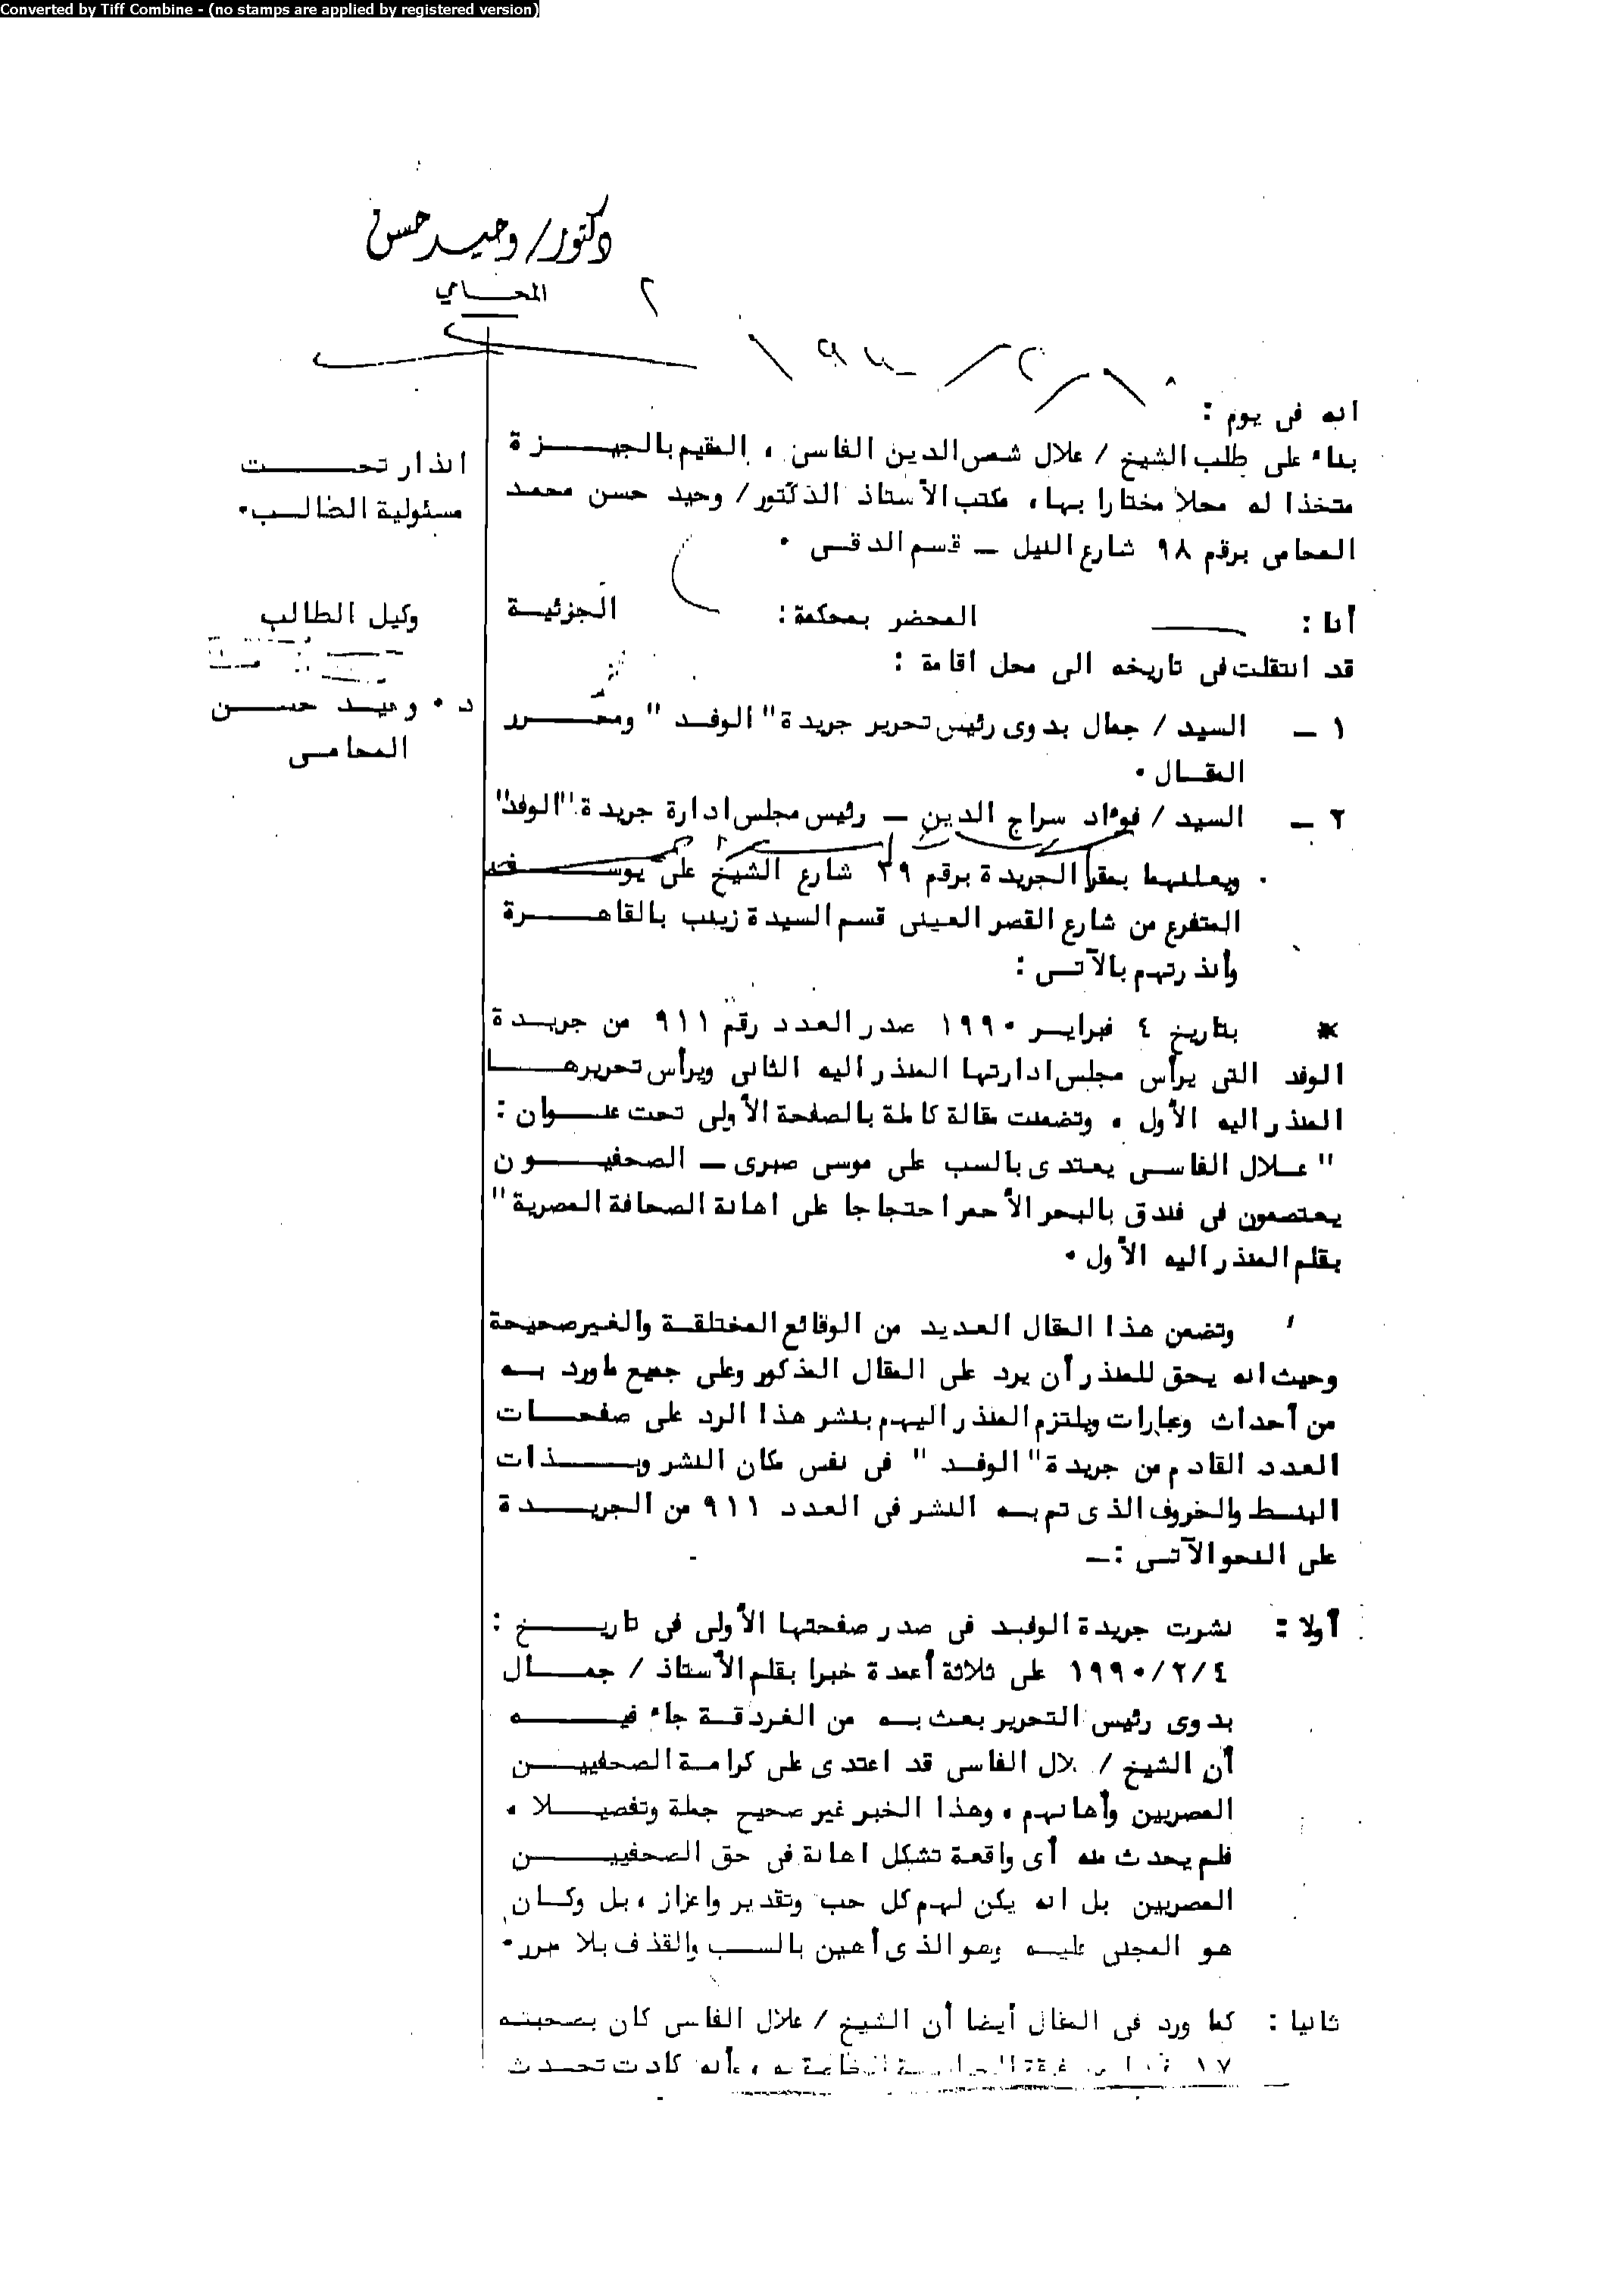 Converted by Tiff Combine - (no stamps are applied by registered version)
دكتور/ وحيد حسن
المحــامي
٢
انه فى يوم :
بناء على طلب الشيخ / علال شمس الدين الفاسى ، المقيم بالجيــزة
متخذا له محلا مختارا بها، مكتب الأستاذ الدكتور/ وحيد حسن محمد
المحامى برقم ٩٨ شارع النيل ــ قسم الدقــى ٠
أنا : المحضر بمحكمة : الجزئيــة
قد انتقلت فى تاريخه الى محل اقامة :
١ ــ السيد / جمال بدوى رئيس تحرير جريدة " الوفــد " ومحــرر
المقــال ٠
٢ ــ السيد / فؤاد سراج الدين ــ رئيس مجلس ادارة جريدة "الوفد"
ويعلنهما بمقر الجريدة برقم ٣٩ شارع الشيخ على يوســف
المتفرع من شارع القصر العينى قسم السيدة زينب بالقاهــرة
وأنذرتهم بالآتــى :
* بتاريخ ٤ فبرايــر ١٩٩٠ صدر العدد رقم ٩١١ من جريــدة
الوفد التى يرأس مجلس ادارتها المنذر اليه الثانى ويرأس تحريرهــا
المنذر اليه الأول ، وتضمنت مقالة كاملة بالصفحة الأولى تحت عنــوان :
" عــلال الفاســى يعتدى بالسب على موسى صبرى ــ الصحفيــون
يعتصمون فى فندق بالبحر الأحمر احتجاجا على اهانة الصحافة المصرية "
بقلم المنذر اليه الأول ٠
وتضمن هذا المقال العديد من الوقائع المختلقــة والغير صحيحة
وحيث انه يحق للمنذر أن يرد على المقال المذكور وعلى جميع ماورد بــه
من أحداث وعبارات ويلتزم المنذر اليهم بنشر هذا الرد على صفحــات
العدد القادم من جريدة " الوفــد " فى نفس مكان النشر وبــذات
البنــط والحروف الذى تم بــه النشر فى العدد ٩١١ من الجريــدة
على النحو الآتــى :ــ
أولا : نشرت جريدة الوفــد فى صدر صفحتها الأولى فى تاريــخ :
١٩٩٠/٢/٤ على ثلاثة أعمدة خبرا بقلم الأستاذ / جمــال
بدوى رئيس التحرير بعث بــه من الغردقــة جاء فيــه
أن الشيخ / علال الفاسى قد اعتدى على كرامــة الصحفييــن
المصريين وأهانهم ، وهذا الخبر غير صحيح جملة وتفصيــلا ،
فلم يحدث منه أى واقعة تشكل اهانة فى حق الصحفييــن
المصريين بل انه يكن لهم كل حب وتقدير واعزاز ، بل وكــان
هو المجنى عليــه وهو الذى أهين بالســب والقذف بلا مبرر٠
ثانيا : كما ورد فى المقال أيضا أن الشيخ / علال الفاسى كان بصحبتــه
١٧ وأنه كادت تحــدث
انذار تحــت
مسئولية الطالــب٠
وكيل الطالب
د ٠ وحيــد حســن
المحامــى